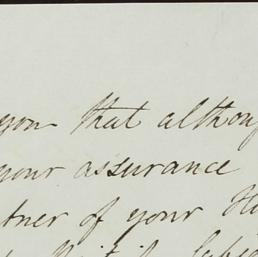 you that althoug
your assurance
tner of your H